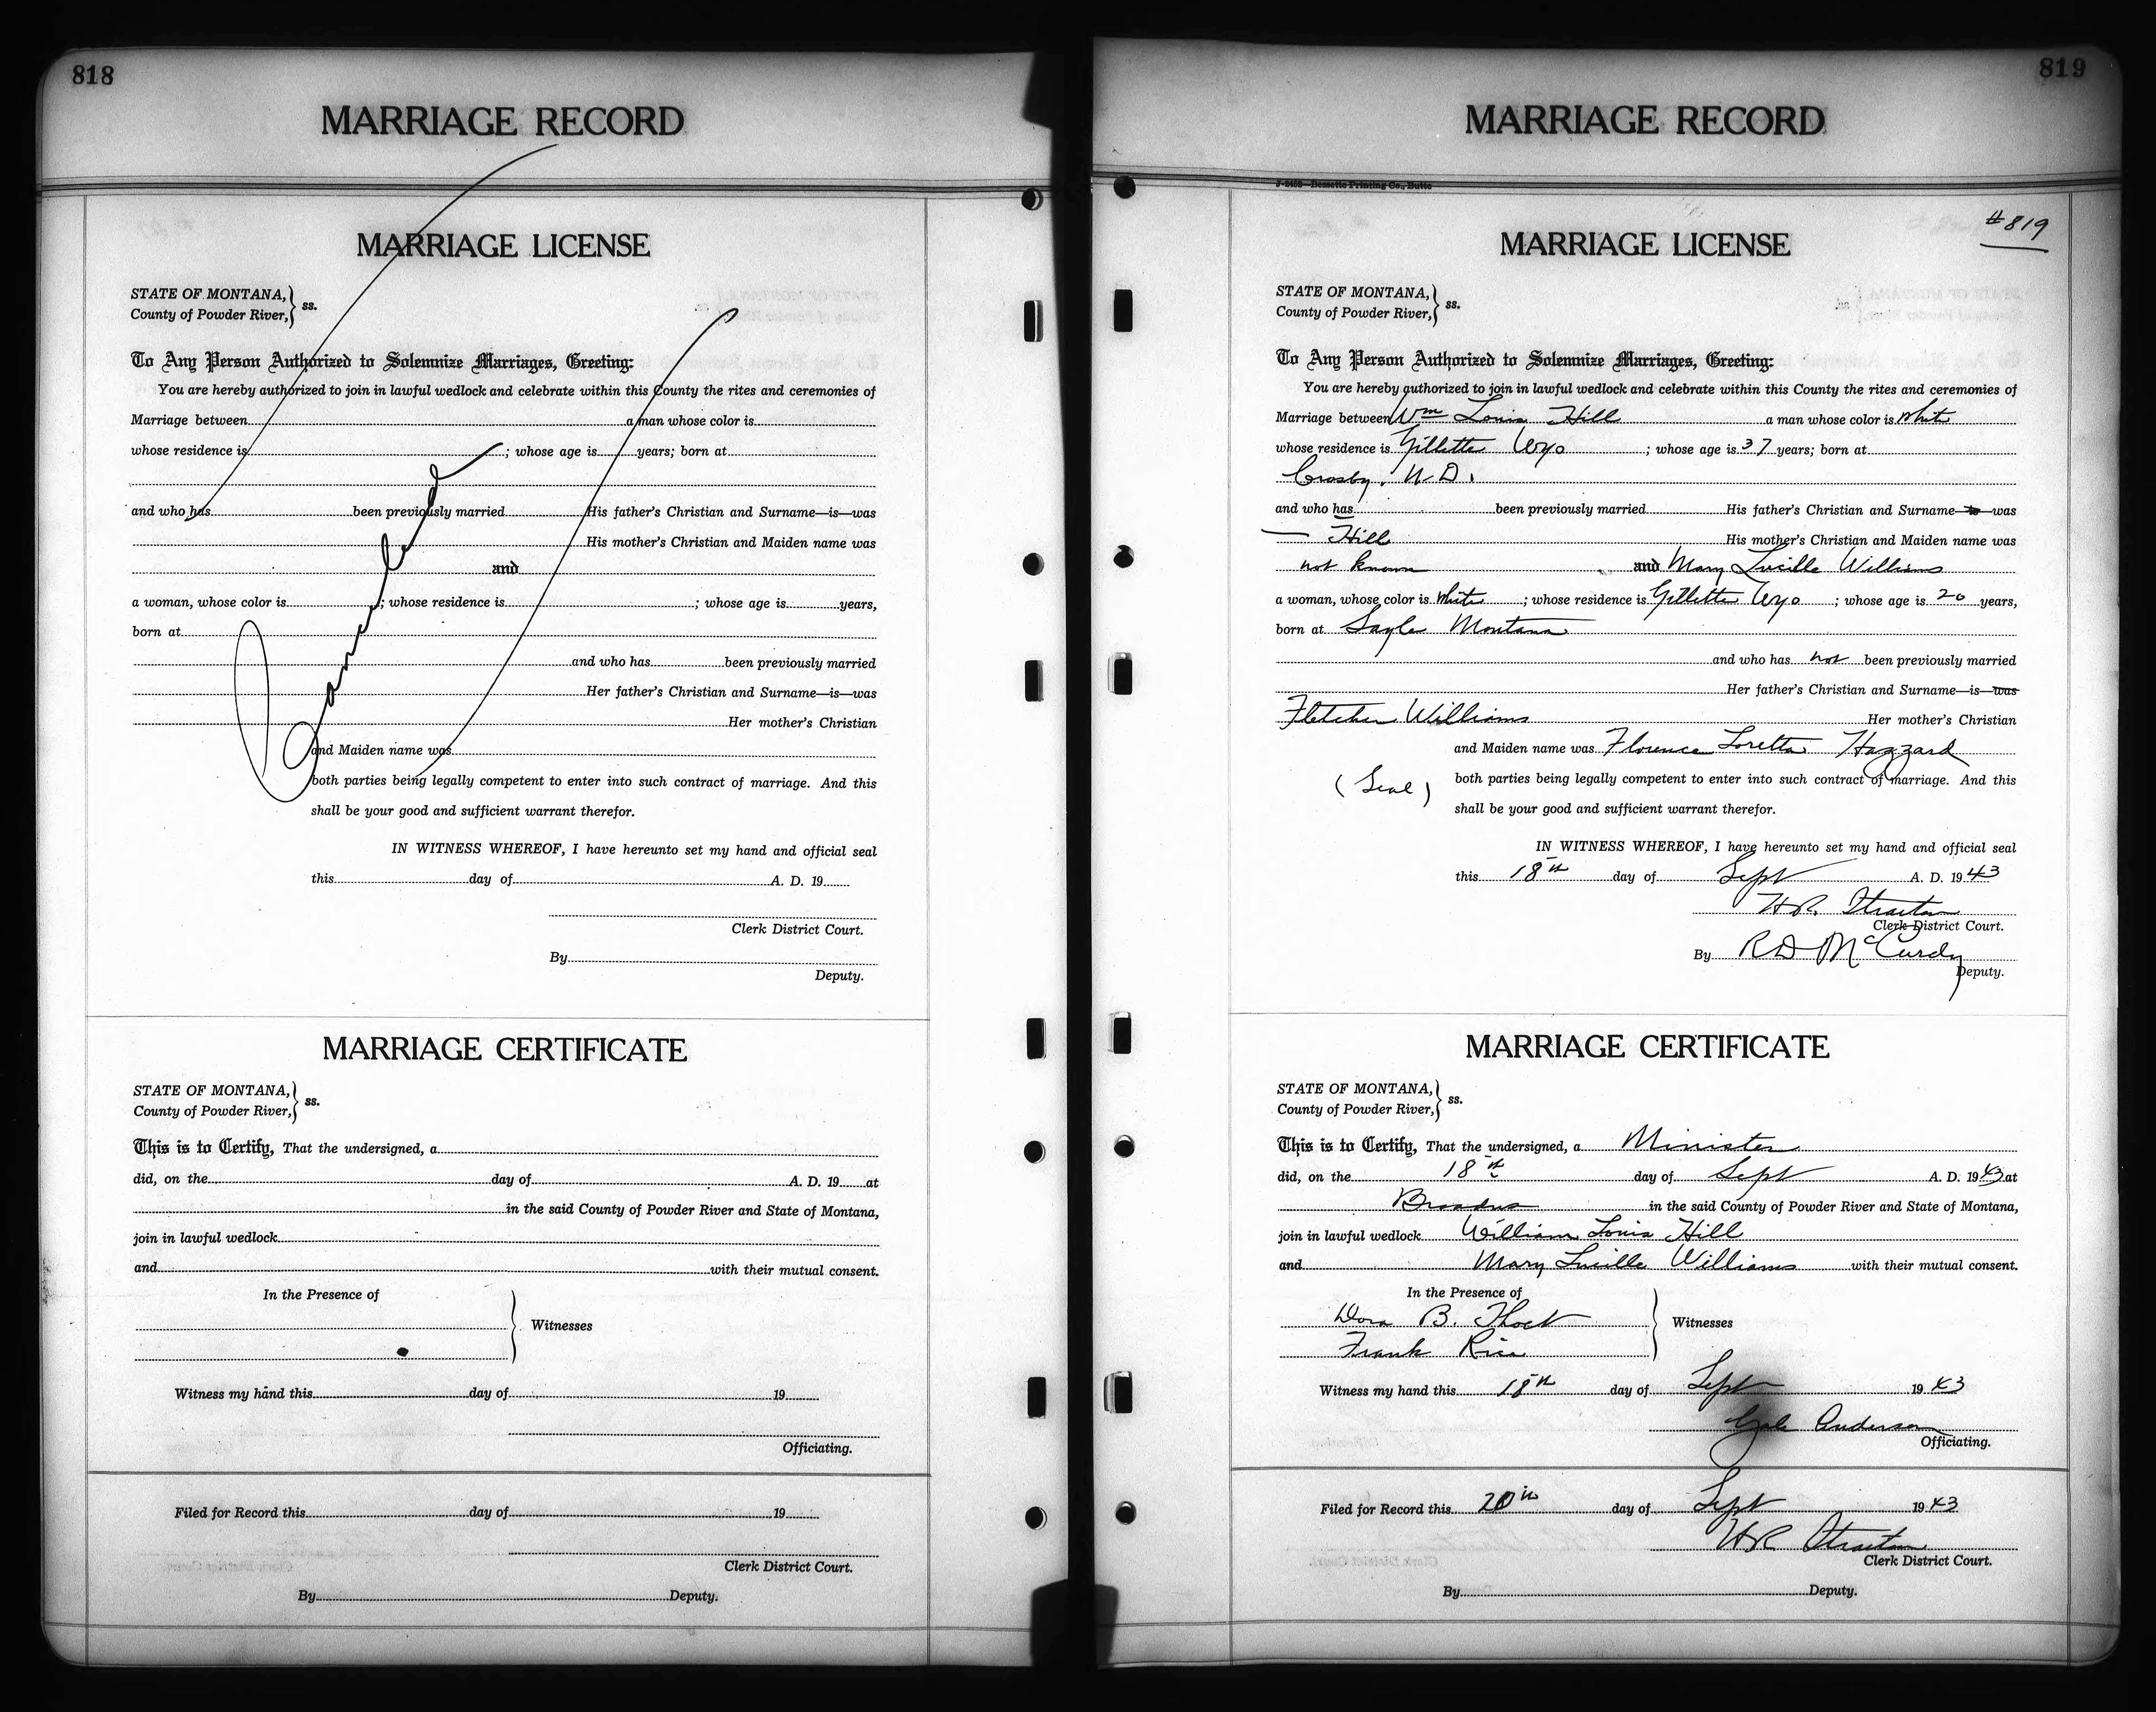 818
MARRIAGE RECORD
MARRIAGE LICENSE
STATE OF MONTANA,
County of Powder River, } ss.
To Any Person Authorized to Solemnize Marriages, Greeting:
You are hereby authorized to join in lawful wedlock and celebrate within this County the rites and ceremonies of
Marriage between a man whose color is
whose residence is ; whose age is years; born at
and who has been previously married His father's Christian and Surname—is—was
His mother's Christian and Maiden name was
and
a woman, whose color is ; whose residence is ; whose age is years,
born at
and who has been previously married
Her father's Christian and Surname—is—was
Her mother's Christian
and Maiden name was
both parties being legally competent to enter into such contract of marriage. And this
shall be your good and sufficient warrant therefor.
Canceled
IN WITNESS WHEREOF, I have hereunto set my hand and official seal
this day of A. D. 19
Clerk District Court.
By
Deputy.
MARRIAGE CERTIFICATE
STATE OF MONTANA,
County of Powder River, } ss.
This is to Certify, That the undersigned, a
did, on the day of A. D. 19 at
in the said County of Powder River and State of Montana,
join in lawful wedlock
and with their mutual consent.
In the Presence of
Witnesses
Witness my hand this day of 19
Officiating.
Filed for Record this day of 19
Clerk District Court.
By Deputy.
819
MARRIAGE RECORD
Bessette Printing Co., Butte
#819
MARRIAGE LICENSE
STATE OF MONTANA,
County of Powder River, } ss.
To Any Person Authorized to Solemnize Marriages, Greeting:
You are hereby authorized to join in lawful wedlock and celebrate within this County the rites and ceremonies of
Marriage between Wm Louis Hill a man whose color is White
whose residence is Gillette Wyo ; whose age is 37 years; born at
Crosby, N.D.
and who has been previously married His father's Christian and Surname—is—was
— Hill His mother's Christian and Maiden name was
not known and Mary Lucille Williams
a woman, whose color is White ; whose residence is Gillette Wyo ; whose age is 20 years,
born at Sayle Montana
and who has not been previously married
Her father's Christian and Surname—is—was
Fletcher Williams Her mother's Christian
and Maiden name was Florence Loretta Hazzard
(Seal) both parties being legally competent to enter into such contract of marriage. And this
shall be your good and sufficient warrant therefor.
IN WITNESS WHEREOF, I have hereunto set my hand and official seal
this 18th day of Sept A. D. 1943
H.R. Straiton
Clerk District Court.
By R D McCurdy
Deputy.
MARRIAGE CERTIFICATE
STATE OF MONTANA,
County of Powder River, } ss.
This is to Certify, That the undersigned, a Minister
did, on the 18th day of Sept A. D. 1943 at
Broadus in the said County of Powder River and State of Montana,
join in lawful wedlock William Louis Hill
and Mary Lucille Williams with their mutual consent.
In the Presence of
Dora B. Witnesses
Frank Rice
Witness my hand this 18th day of Sept 1943
Gale Anderson
Officiating.
Filed for Record this 20th day of Sept 1943
HR Straiton
Clerk District Court.
By Deputy.